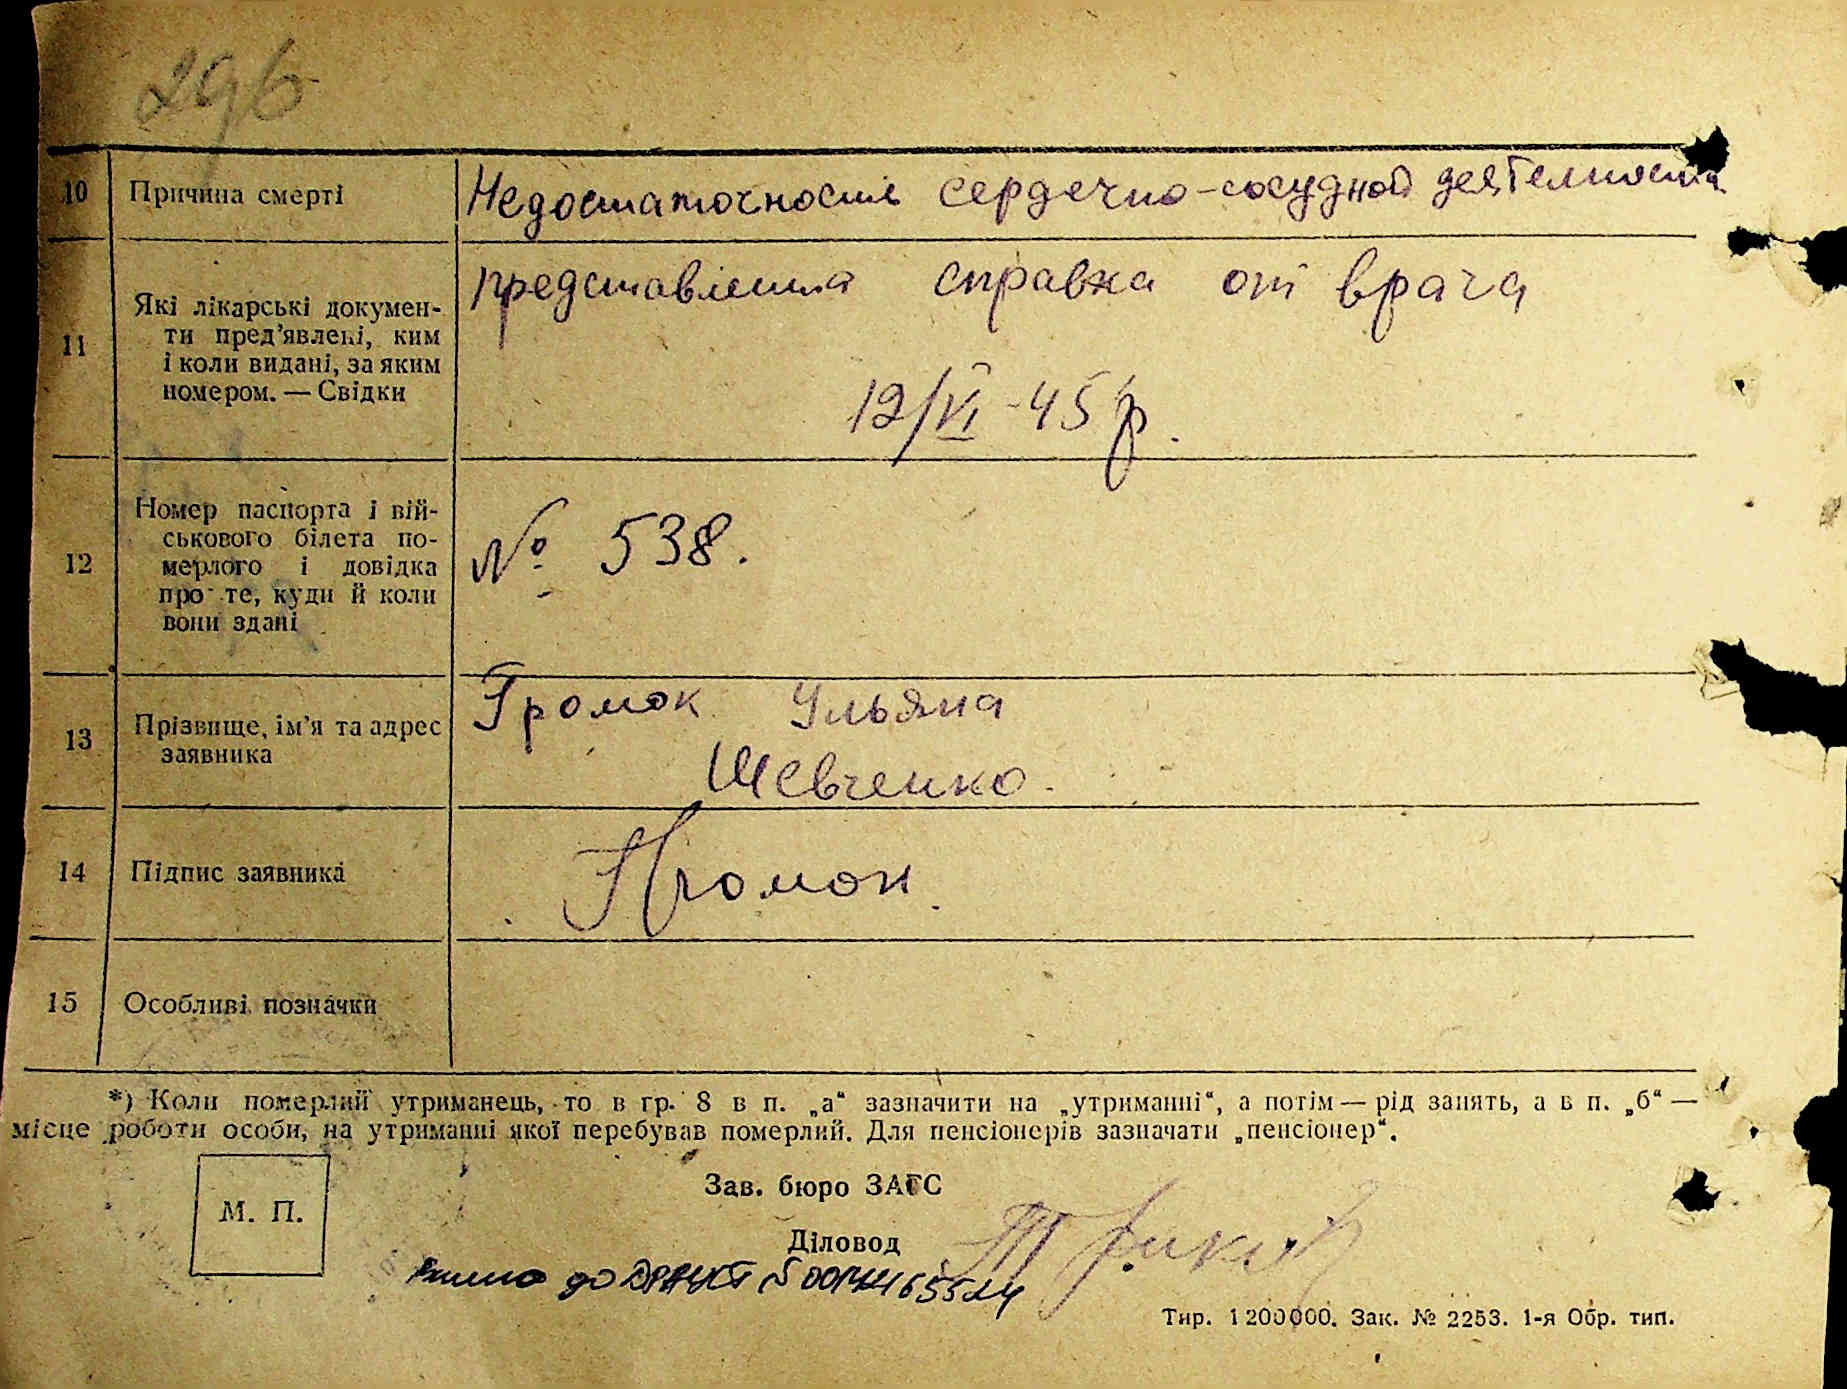 296
10 Причина смерті Недостаточность сердечно-сосудной деятельности
11 Які лікарські докумен- представлена справка от врача
ти пред'явлені, ким
і коли видані, за яким
номером. — Свідки 12/VI-45 р.
12 Номер паспорта і вій-
ськового білета по-
мерлого і довідка № 538.
про те, куди й коли
вони здані
13 Прізвище, ім'я та адрес Громок Ульяна
заявника Шевченко.
14 Підпис заявника Громок
15 Особливі позначки
*) Коли померлий утриманець, то в гр. 8 в п. „а“ зазначити на „утриманні“, а потім — рід занять, а в п. „б“ —
місце роботи особи, на утриманні якої перебував померлий. Для пенсіонерів зазначати „пенсіонер“.
Зав. бюро ЗАГС
М. П.
Діловод
до ДРАЦСГ № 00174465524
Тир. 1200000. Зак. № 2253. 1-я Обр. тип.